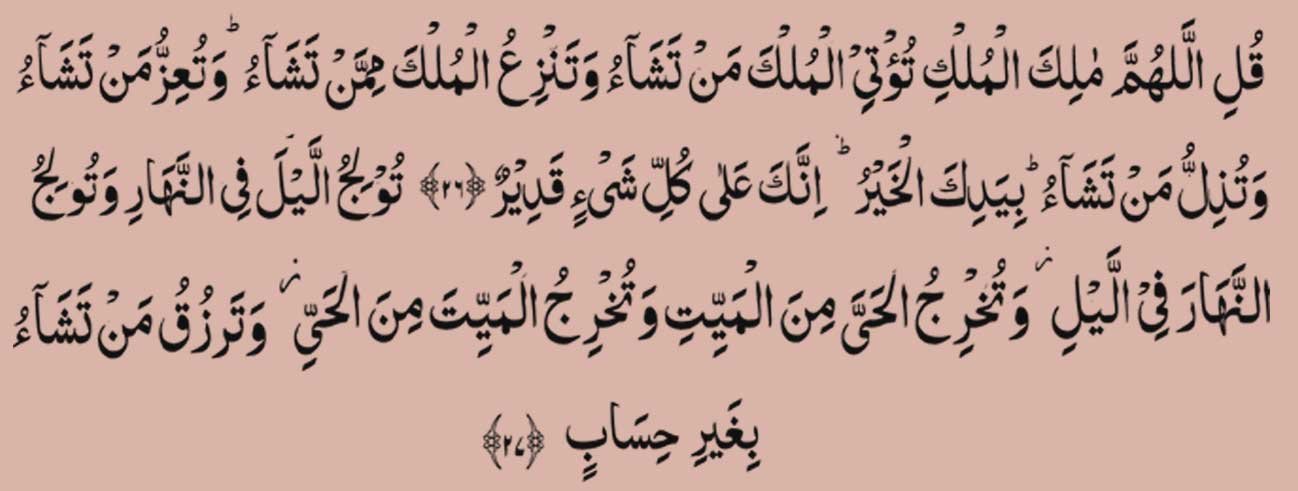 قُلِ الَّلهُمَّ مٰلِكَ الْمُلْكِ تُؤْتِي الْمُلْكَ مَنْ تَشَآءُ وَتَنْزِعُ الْمُلْكَ مِمَّنْ تَشَآءُ ؕ وَتُعِزُّ مَنْ تَشَآءُ
وَتُذِلُّ مَنْ تَشَآءُ ؕ بِيَدِكَ الْخَيْرُ ؕ اِنَّكَ عَلٰى كُلِّ شَىْءٍ قَدِيْرٌ ﴿۲۶﴾ تُوْلِجُ الَّيْلَ فِى النَّهَارِ وَتُولِجُ
النَّهَارَ فِىْ الَّيْلِ ؗ وَتُخْرِجُ الْحَىَّ مِنَ الْمَيِّتِ وَتُخْرِجُ الْمَيِّتَ مِنَ الْحَىِّ ؗ وَتَرْزُقُ مَنْ تَشَآءُ
بِغَيرِ حِسَابٍ ﴿۲۷﴾